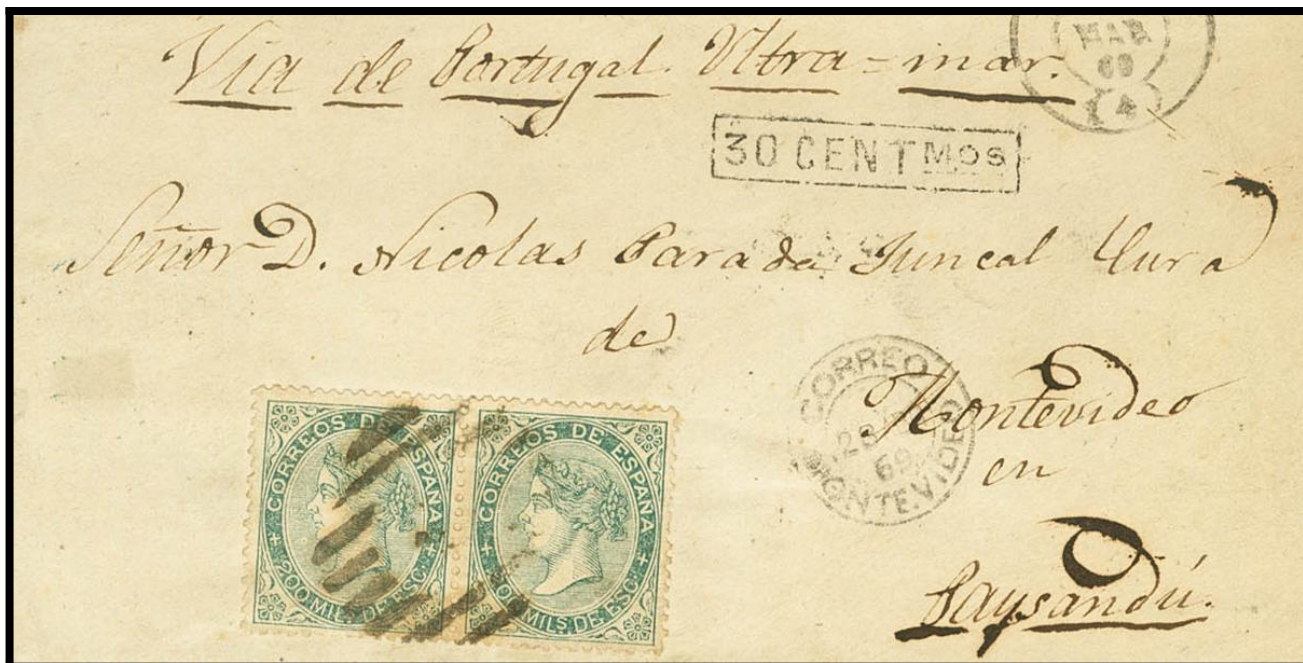 Via de Portugal. Ultra=mar.
MAR
69
30 CENTMOS
Señor D. Nicolas Parada Juncal Cura
de
CORREO
Montevideo
28
69
MONTEVIDEO
en
Paysandú.
CORREOS DE ESPAÑA
200 MILS. DE ESC.
CORREOS DE ESPAÑA
MILS. DE ESC.